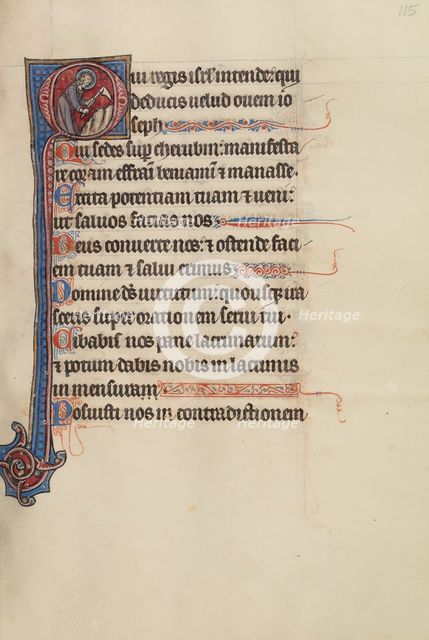 115
Qui regis isrł intende: qui
deducis uelud ouem io
seph
Qui sedes sup cherubin: manifesta
re coram effraim beniamin & manasse.
Excita potentiam tuam & ueni:
ut saluos facias nos
Deus conuerte nos: & ostende faci
em tuam & salui erimus
Domine ds uirtutum: quousq; ira
sceris super orationem serui tui.
Cibabis nos pane lacrimarum:
& potum dabis nobis in lacrimis
in mensuram
Posuisti nos in contradictionem
Heritage
Heritage
Heritage
Heritage
Heritage
Heritage